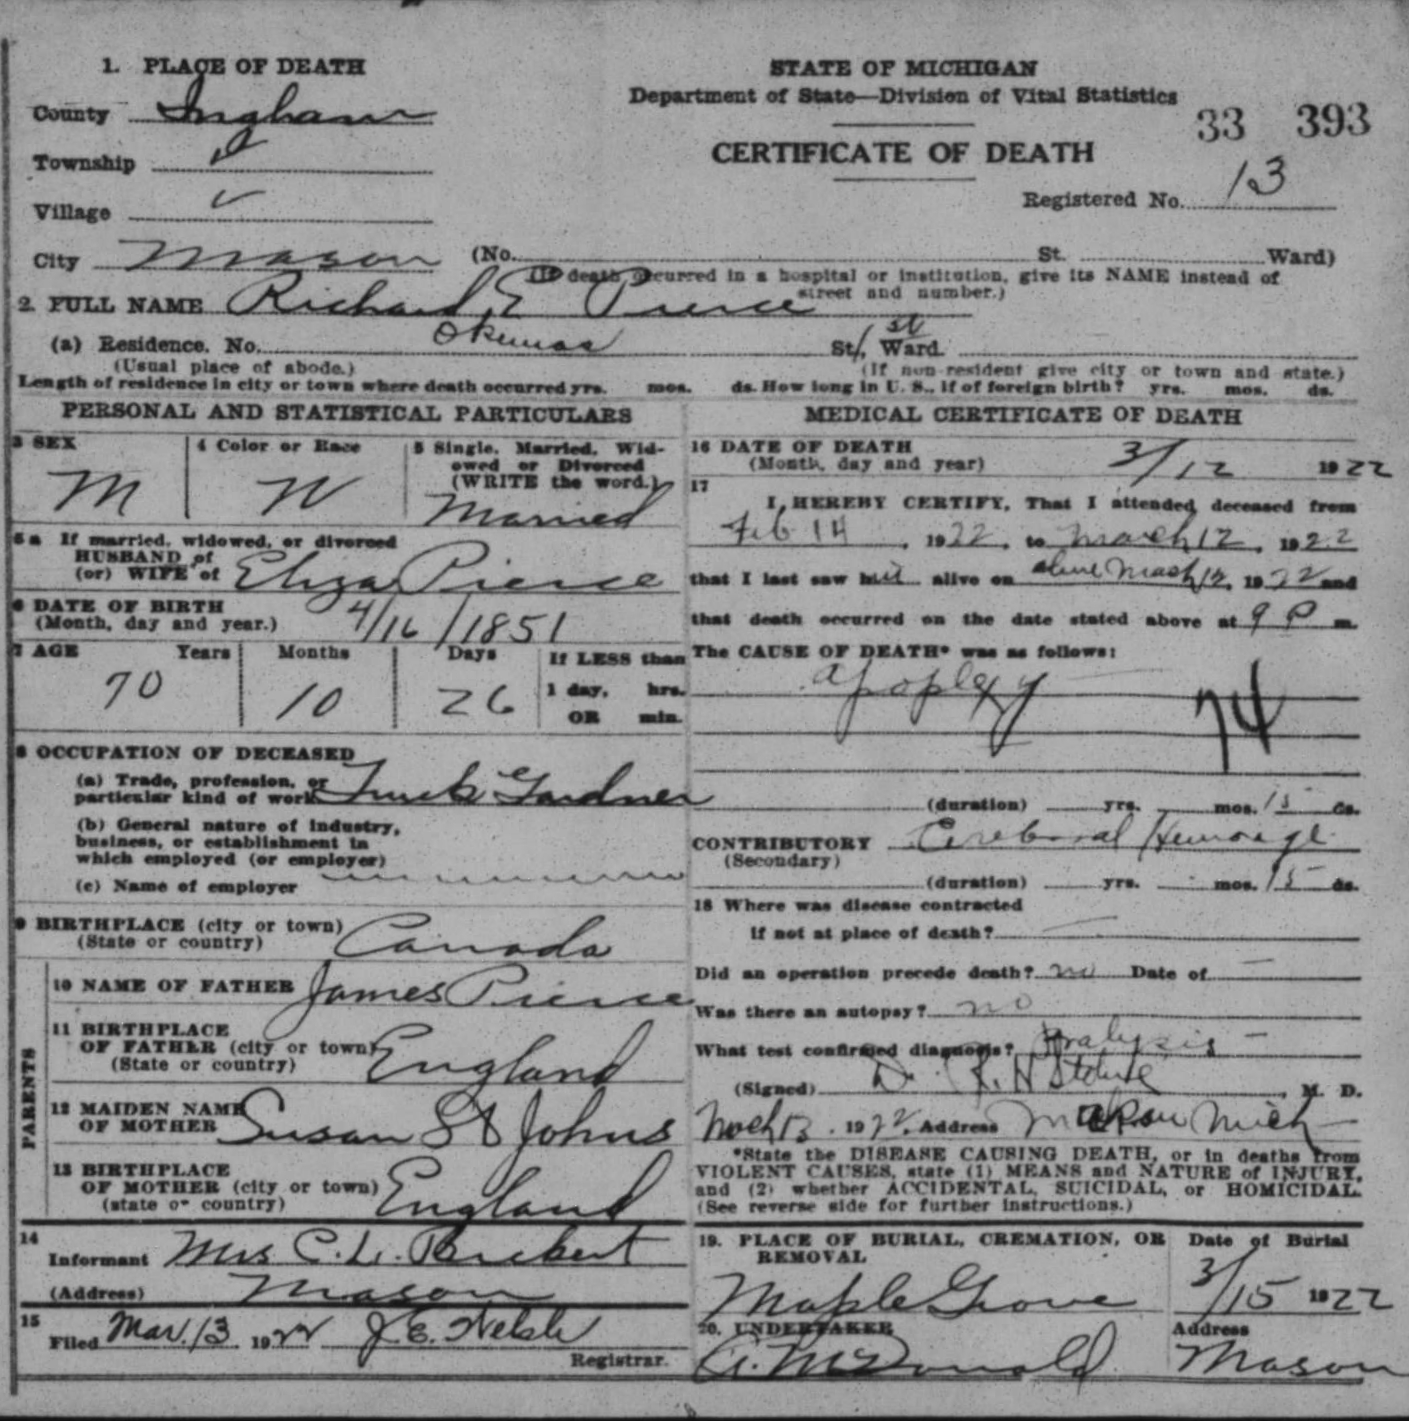 1. PLACE OF DEATH
County Ingham
Township
Village
City Mason
STATE OF MICHIGAN
Department of State—Division of Vital Statistics
33 393
CERTIFICATE OF DEATH
Registered No. 13
(No. St. Ward)
(If death occurred in a hospital or institution, give its NAME instead of
street and number.)
2. FULL NAME Richard E Pierce
(a) Residence. No. Okemos St., 1st Ward.
(Usual place of abode.) (If non-resident give city or town and state.)
Length of residence in city or town where death occurred yrs. mos. ds. How long in U. S., if of foreign birth? yrs. mos. ds.
PERSONAL AND STATISTICAL PARTICULARS
3 SEX
M
4 Color or Race
W
5 Single, Married, Wid-
owed or Divorced
(WRITE the word.)
Married
5a If married, widowed, or divorced
HUSBAND of
(or) WIFE of Eliza Pierce
6 DATE OF BIRTH
(Month, day and year.) 4/16/1851
7 AGE Years Months Days
70 10 26
If LESS than
1 day, hrs.
OR min.
8 OCCUPATION OF DECEASED
(a) Trade, profession, or
particular kind of work Truck Gardner
(b) General nature of industry,
business, or establishment in
which employed (or employer)
(c) Name of employer
9 BIRTHPLACE (city or town)
(State or country) Canada
PARENTS
10 NAME OF FATHER James Pierce
11 BIRTHPLACE
OF FATHER (city or town)
(State or country) England
12 MAIDEN NAME
OF MOTHER Susan St Johns
13 BIRTHPLACE
OF MOTHER (city or town)
(state or country) England
14
Informant Mrs C. L.
(Address) Mason
15
Filed Mar. 13 1922 J. E. Welsh
Registrar.
MEDICAL CERTIFICATE OF DEATH
16 DATE OF DEATH
(Month, day and year) 3/12 1922
17
I, HEREBY CERTIFY, That I attended deceased from
Feb 14, 1922, to March 12, 1922
that I last saw h alive on March 12, 1922 and
that death occurred on the date stated above at 9 P m.
The CAUSE OF DEATH* was as follows:
Apoplexy
74
(duration) yrs. mos. 15 ds.
CONTRIBUTORY Cerebral Hemorage
(Secondary)
(duration) yrs. mos. 15 ds.
18 Where was disease contracted
if not at place of death?
Did an operation precede death? no Date of —
Was there an autopsy? no
What test confirmed diagnosis? Paralysis
(Signed) Dr. R. H , M. D.
13, 1922, Address Mason Mich
*State the DISEASE CAUSING DEATH, or in deaths from
VIOLENT CAUSES, state (1) MEANS and NATURE of INJURY,
and (2) whether ACCIDENTAL, SUICIDAL, or HOMICIDAL.
(See reverse side for further instructions.)
19. PLACE OF BURIAL, CREMATION, OR
REMOVAL
Maple Grove
Date of Burial
3/15 1922
20. UNDERTAKER
A. McDonald
Address
Mason